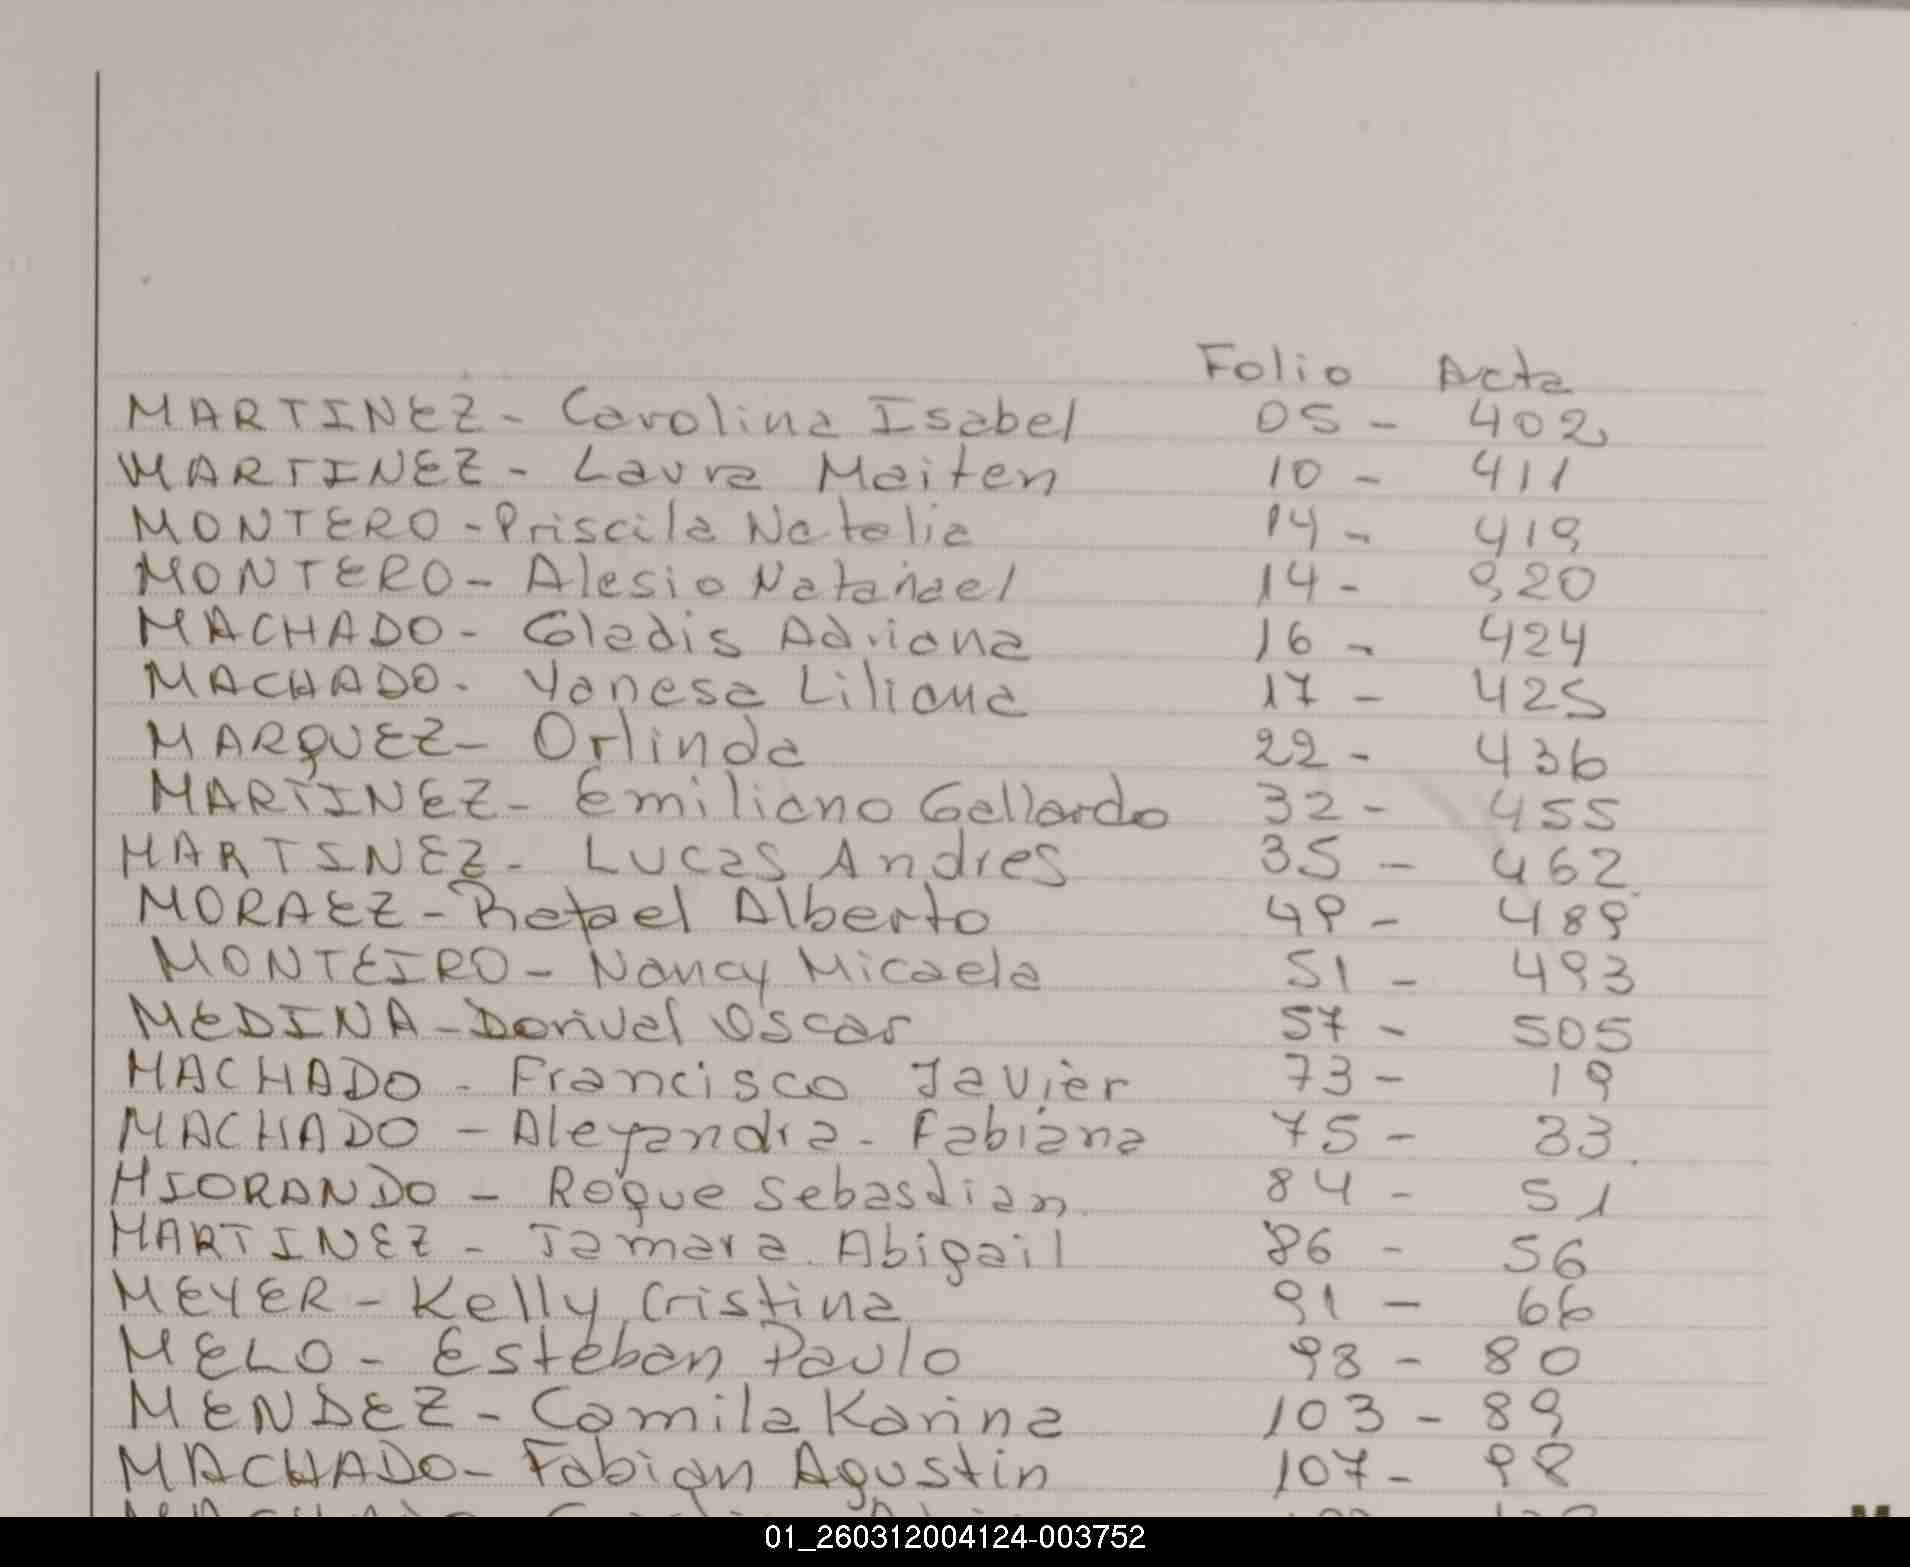 Folio Acta
MARTINEZ - Carolina Isabel 05 - 402
MARTINEZ - Laura Maiten 10 - 411
MONTERO - Priscila Natalia 14 - 419
MONTERO - Alesio Natanael 14 - 920
MACHADO - Gladis Adriana 16 - 424
MACHADO - Yanesa Liliana 17 - 425
MARQUEZ - Orlinda 22 - 436
MARTINEZ - Emiliano Gallardo 32 - 455
MARTINEZ - Lucas Andres 35 - 462
MORAEZ - Rafael Alberto 49 - 489
MONTEIRO - Nancy Micaela 51 - 493
MEDINA - Dorival Oscar 57 - 505
MACHADO - Francisco Javier 73 - 19
MACHADO - Aleyandra - Fabiana 75 - 33
MIORANDO - Roque Sebasdian 84 - 51
MARTINEZ - Tamara Abigail 86 - 56
MEYER - Kelly Cristina 91 - 66
MELO - Esteban Paulo 98 - 80
MENDEZ - Camila Karina 103 - 89
MACHADO - Fabian Agustin 107 - 98
01_260312004124-003752